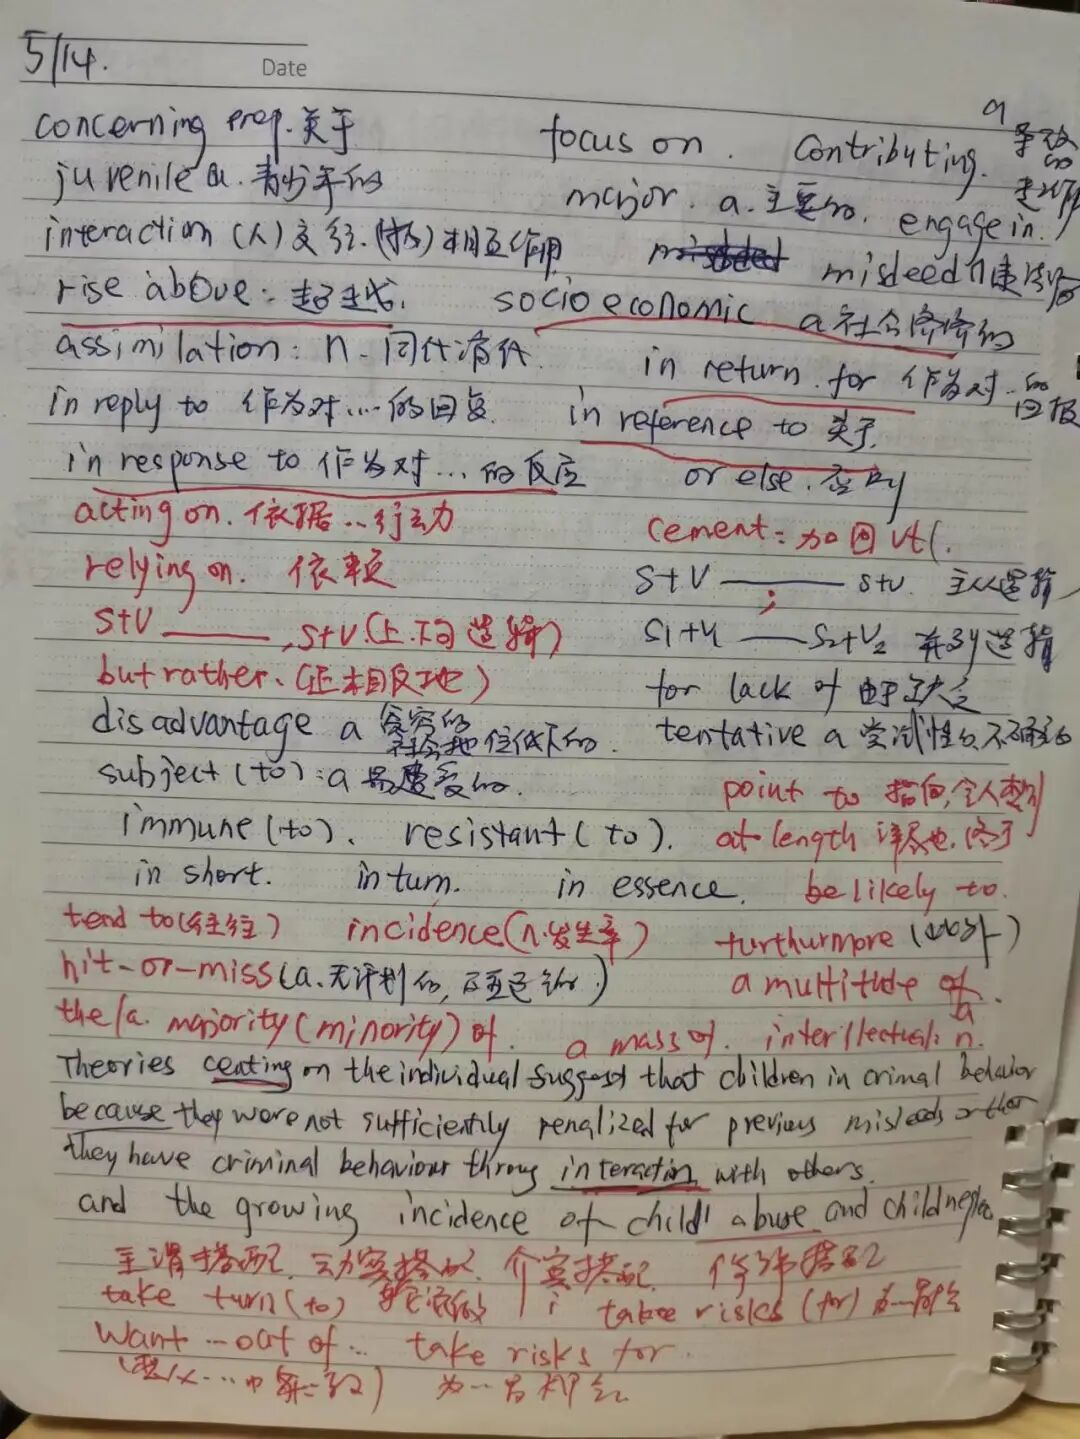 5/14.
Date
concerning prep. 关于
focus on. contributing. a 导致的
juvenile a. 青少年的
major. a. 主要的. engage in.
interaction (人) 交往. (物) 相互作用
misdeed n
rise above: 超越.
socioeconomic a 社会经济的
assimilation: n. 同化
in return for 作为对..的回报
in reply to 作为对....的回复
in reference to 关于
in response to 作为对...的反应
or else. 否则
acting on. 依据..行动
cement: 加固 vt
relying on. 依赖
S+V ——— S+V. 主从逻辑
S+V ———, S+V (上.下句逻辑)
;
S1+V1 —— S2+V2 并列逻辑
but rather. (正相反地)
for lack of 由于缺乏
disadvantage a 贫穷的 社会地位低下的.
tentative a 尝试性的 不确定的
subject (to): a 易遭受的.
point to 指向,
immune (to). resistant (to).
at length 详尽地. 终于
in short. in turn. in essence.
be likely to.
tend to (往往) incidence (n. 发生率)
furthurmore (此外)
hit-or-miss (a. 无计划的,
a multitude of
the/a. majority (minority) of. a mass of. interllectual: a n.
Theories ceating on the individual suggest that children in crimal behavior
because they were not sufficiently penalized for previous misdeeds or that
they have criminal behaviour throug interaction with others.
and the growing incidence of child abuse and child neglec
主谓搭配. 动宾搭配. 介宾搭配. 修饰搭配
take turn (to) take risks (for) 为…冒险
want ... out of ... take risks for.
为...